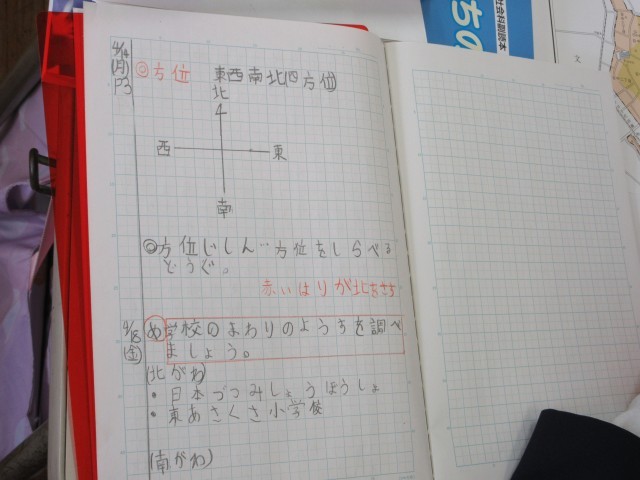 4/14
(月)
P3
◎方位 東西南北(四方位)
北
西 東
南
◎方位じしん…方位をしらべる
どうぐ。
赤いはりが北をさす
4/18
(金)
め 学校のまわりのようすを調べ
ましょう。
(北がわ)
・日本つつみしょうほうしょ
・東あさくさ小学校
(南がわ)
社会科副読本
ちの
文